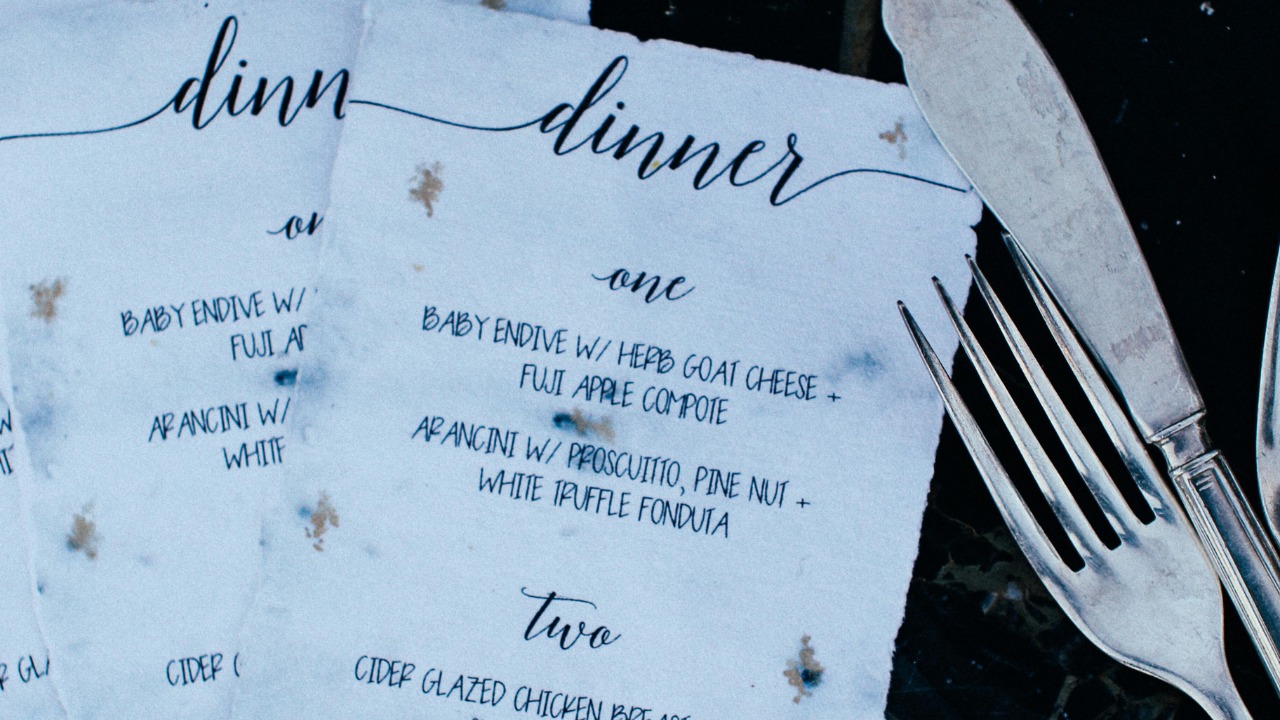 dinner
one
BABY ENDIVE W/ HERB GOAT CHEESE +
FUJI APPLE COMPOTE
ARANCINI W/ PROSCUITTO, PINE NUT +
WHITE TRUFFLE FONDUTA
two
CIDER GLAZED CHICKEN BREAST
dinn
on
BABY ENDIVE W/
FUJI AP
ARANCINI W/
WHITE
CIDER